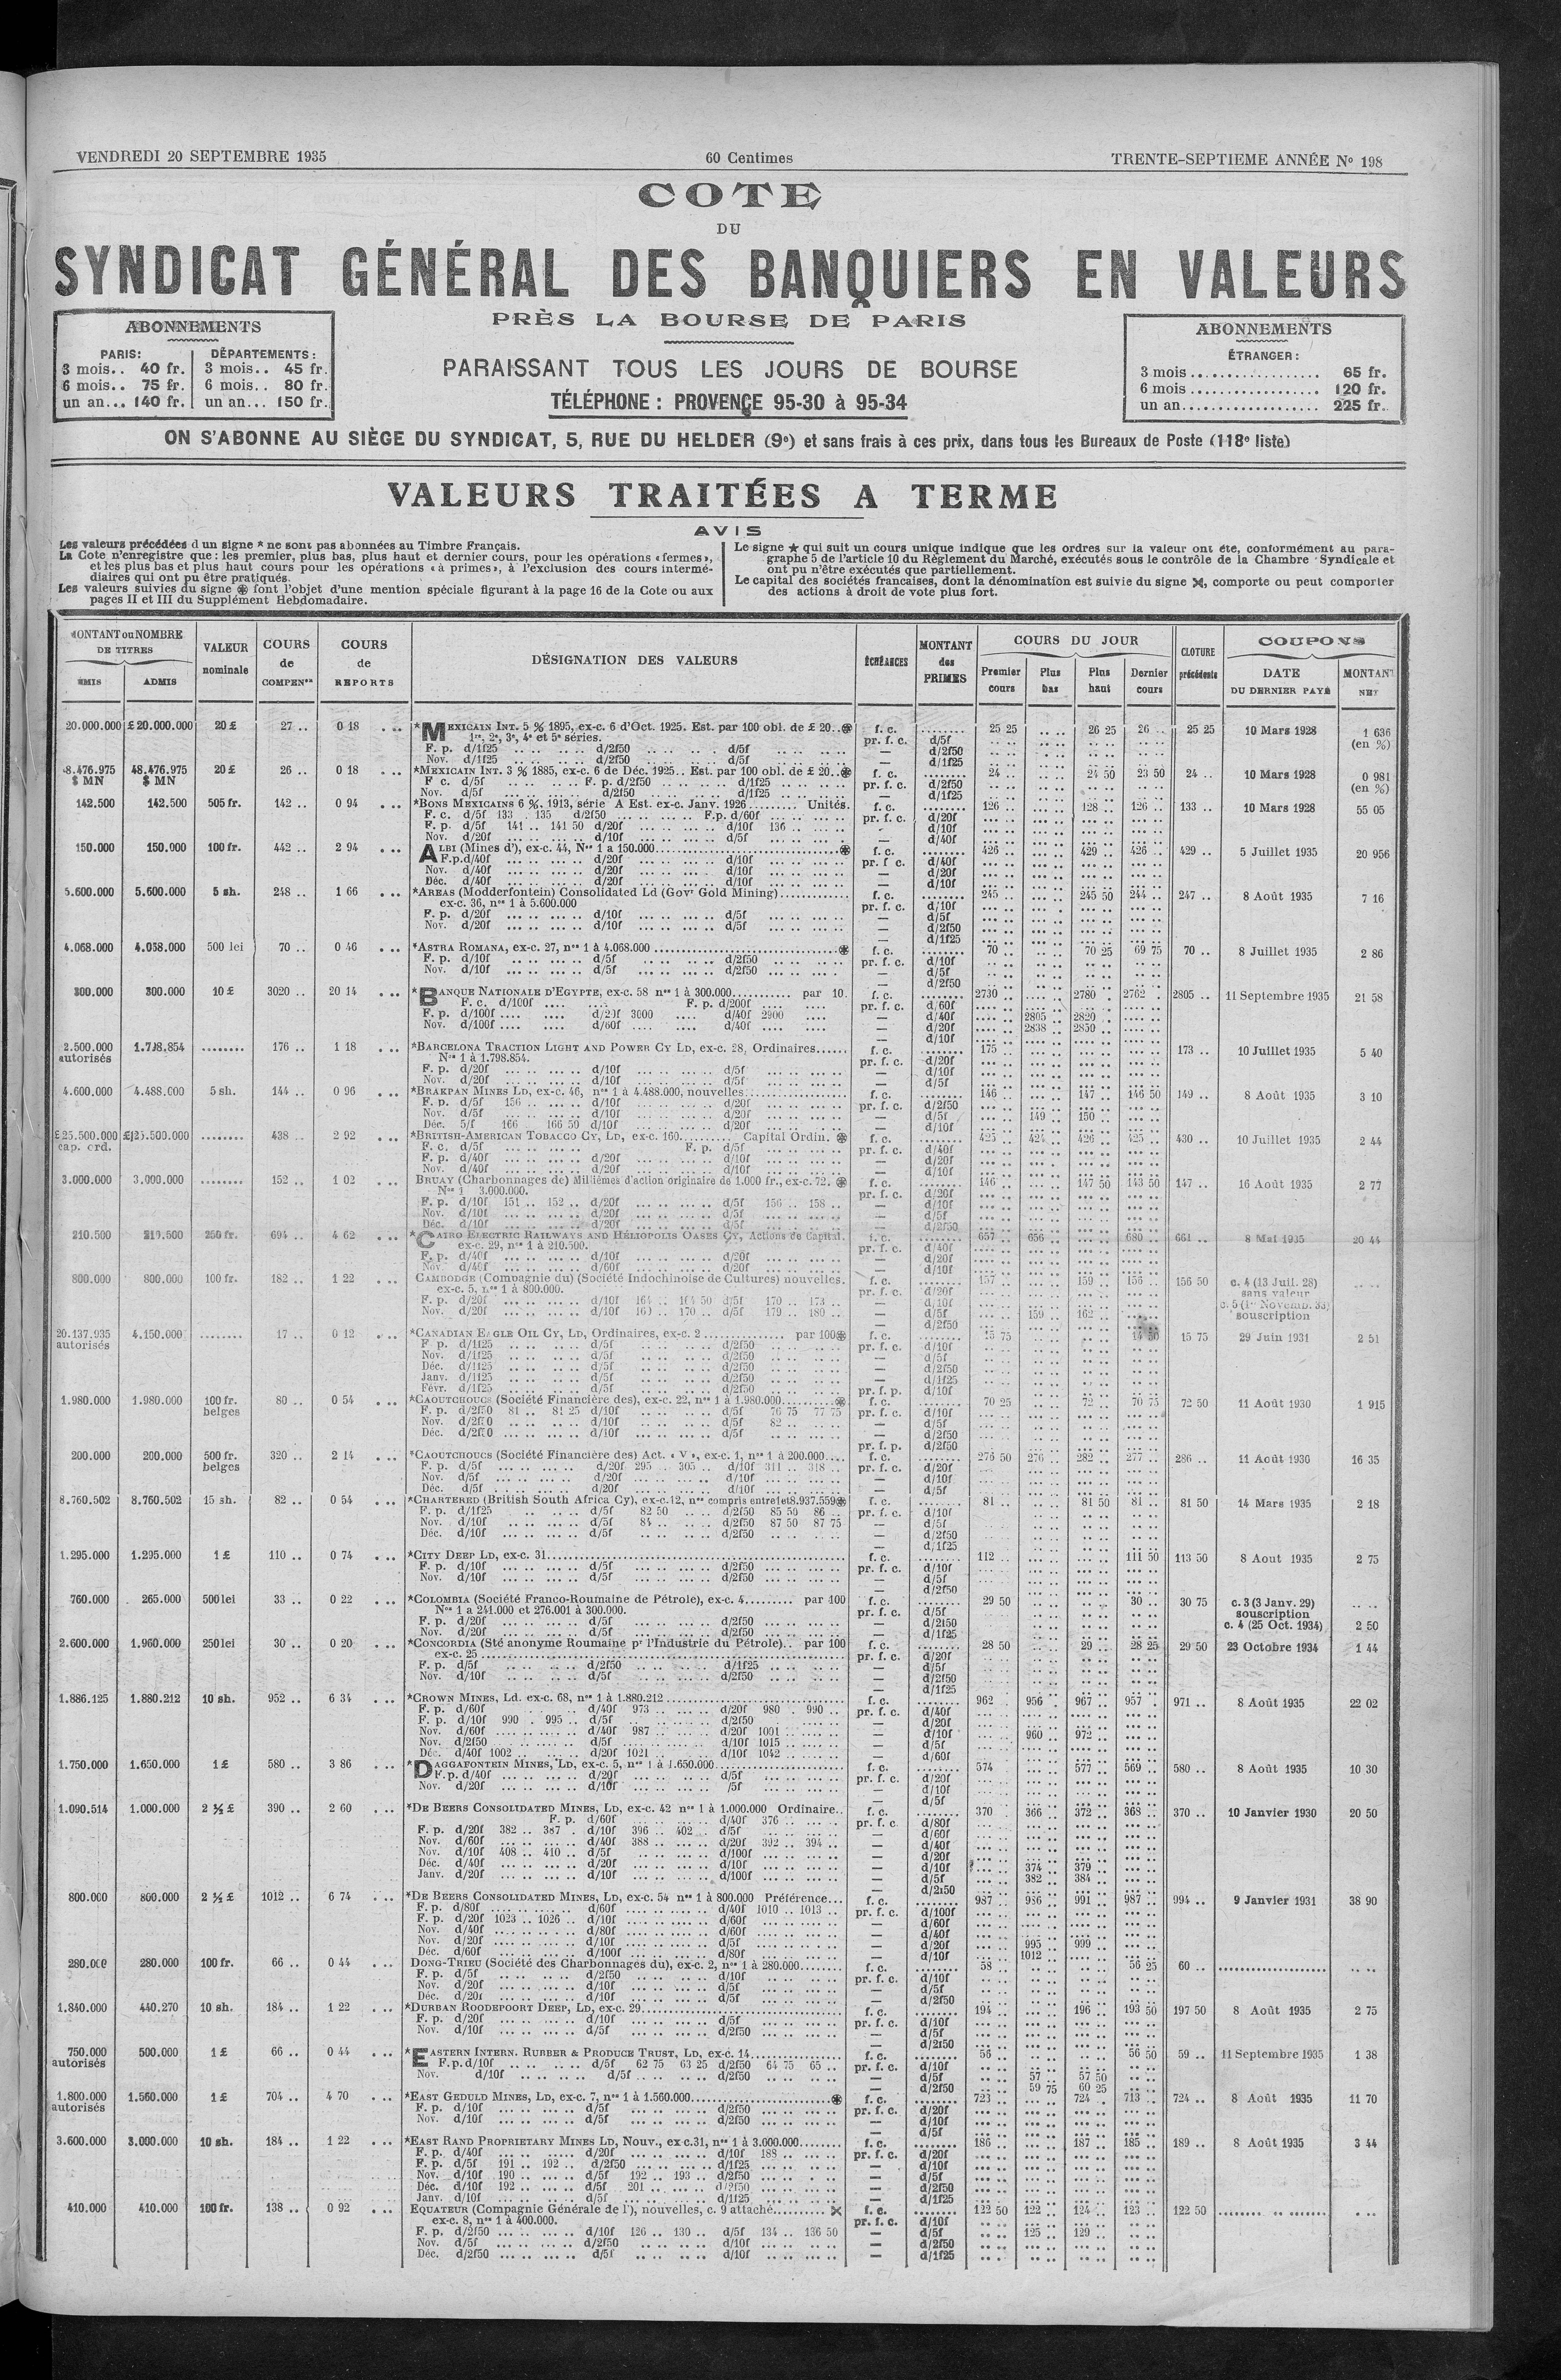 VENDREDI 20 SEPTEMBRE 1935
60 Centimes
TRENTE-SEPTIEME ANNÉE No 198
COTE
DU
SYNDICAT GÉNÉRAL DES BANQUIERS EN VALEURS
PRÈS LA BOURSE DE PARIS
PARAISSANT TOUS LES JOURS DE BOURSE
TÉLÉPHONE : PROVENCE 95-30 à 95-34
ABONNEMENTS
PARIS: DÉPARTEMENTS :
3 mois.. 40 fr. 3 mois.. 45 fr.
6 mois.. 75 fr. 6 mois.. 80 fr.
un an... 140 fr. un an... 150 fr.
ABONNEMENTS
ÉTRANGER :
3 mois ................. 65 fr.
6 mois ................. 120 fr.
un an................... 225 fr.
ON S'ABONNE AU SIÈGE DU SYNDICAT, 5, RUE DU HELDER (9e) et sans frais à ces prix, dans tous les Bureaux de Poste (118e liste)
VALEURS TRAITÉES A TERME
AVIS
Les valeurs précédées d un signe * ne sont pas abonnées au Timbre Français.
La Cote n'enregistre que : les premier, plus bas, plus haut et dernier cours, pour les opérations « fermes »,
et les plus bas et plus haut cours pour les opérations « à primes », à l'exclusion des cours intermé-
diaires qui ont pu être pratiqués.
Les valeurs suivies du signe ֍ font l'objet d'une mention spéciale figurant à la page 16 de la Cote ou aux
pages II et III du Supplément Hebdomadaire.
Le signe ★ qui suit un cours unique indique que les ordres sur la valeur ont été, conformément au para-
graphe 5 de l'article 10 du Règlement du Marché, exécutés sous le contrôle de la Chambre Syndicale et
ont pu n'être exécutés que partiellement.
Le capital des sociétés francaises, dont la dénomination est suivie du signe ⪥, comporte ou peut comporter
des actions à droit de vote plus fort.
MONTANT ou NOMBRE DE TITRES
EMIS ADMIS
VALEUR nominale
COURS de COMPENon
COURS de REPORTS
DÉSIGNATION DES VALEURS
ÉCHÉANCES
MONTANT des PRIMES
COURS DU JOUR
Premier cours Plus bas Plus haut Dernier cours
CLOTURE précédente
COUPONS
DATE DU DERNIER PAYÉ MONTANT NET
20.000.000 £ 20.000.000 20 £ 27 .. 0 18 *MEXICAIN INT. 5 % 1895, ex-c. 6 d'Oct. 1925. Est. par 100 obl. de £ 20.. f. c. 25 25 26 25 26 .. 25 25 10 Mars 1928 1 636 (en %)
1re, 2e, 3e, 4e et 5e séries.
F. p. d/1f25 d/2f50 d/5f
Nov. d/1f25 d/2f50 d/5f
48.476.975 $ MN 20 £ 26 .. 0 18 *MEXICAIN INT. 3 % 1885, ex-c. 6 de Déc. 1925.. Est. par 100 obl. de £ 20.. f. c. 24 .. 24 50 23 50 24 .. 10 Mars 1928 0 981 (en %)
F c. d/5f F. p. d/2f50 d/1f25
Nov. d/5f d/2f50 d/1f25
142.500 142.500 505 fr. 142 .. 0 94 *BONS MEXICAINS 6 %. 1913, série A Est. ex-c. Janv. 1926 Unités. f. c. 126 .. 128 .. 126 .. 133 .. 10 Mars 1928 55 05
F. c. d/5f 133 . 135 d/2f50 F.p. d/60f
F. p. d/5f 141 .. 141 50 d/20f d/10f 136 ..
Nov. d/20f d/10f d/5f
150.000 150.000 100 fr. 442 .. 2 94 ALBI (Mines d'), ex-c. 44, Nos 1 a 150.000 f. c. 426 .. 429 .. 426 .. 429 .. 5 Juillet 1935 20 956
F.p. d/40f d/20f d/10f
Nov. d/40f d/20f d/10f
Déc. d/40f d/20f d/10f
5.600.000 5.600.000 5 sh. 248 .. 1 66 *AREAS (Modderfontein) Consolidated Ld (Govt Gold Mining) f. c. 245 .. 245 50 244 .. 247 .. 8 Août 1935 7 16
ex-c. 36, nos 1 à 5.600.000
F. p. d/20f d/10f d/5f
Nov. d/20f d/10f d/5f
4.068.000 4.058.000 500 lei 70 .. 0 46 *ASTRA ROMANA, ex-c. 27, nos 1 à 4.068.000 f. c. 70 .. 70 25 69 75 70 .. 8 Juillet 1935 2 86
F. p. d/10f d/5f d/2f50
Nov. d/10f d/5f d/2f50
300.000 300.000 10 £ 3020 .. 20 14 *BANQUE NATIONALE D'EGYPTE, ex-c. 58 nos 1 à 300.000 par 10. f. c. 2730 .. 2780 . 2762 . 2805 .. 11 Septembre 1935 21 58
F. c. d/100f F. p. d/200f
F. p. d/100f d/20f 3000 d/40f 2900 d/40f 2805 .. 2820 ..
Nov. d/100f d/60f d/40f d/20f 2838 .. 2850 ..
2.500.000 autorisés 1.798.854 176 .. 1 18 *BARCELONA TRACTION LIGHT AND POWER CY LD, ex-c. 28, Ordinaires f. c. 175 .. 173 .. 10 Juillet 1935 5 40
Nos 1 à 1.798.854.
F. p. d/20f d/10f d/5f
Nov. d/20f d/10f d/5f
4.600.000 4.488.000 5 sh. 144 .. 0 96 *BRAKPAN MINES LD, ex-c. 46, nos 1 à 4.488.000, nouvelles f. c. 146 .. 147 .. 146 50 149 .. 8 Août 1935 3 10
F. p. d/5f 156 .. d/10f d/20f
Nov. d/5f d/10f d/20f d/5f 149 .. 150 ..
Déc. 5/f 166 166 50 d/10f d/20f
£ 25.500.000 cap. ord. £ 25.500.000 438 .. 2 92 *BRITISH-AMERICAN TOBACCO CY, LD, ex-c. 160 Capital Ordin. f. c. 425 .. 424 .. 426 .. 425 .. 430 .. 10 Juillet 1935 2 44
F. c. d/5f F. p. d/5f
F. p. d/40f d/20f d/10f
Nov. d/40f d/20f d/10f
3.000.000 3.000.000 152 .. 1 02 BRUAY (Charbonnages de) Millièmes d'action originaire de 1.000 fr., ex-c. 72. f. c. 146 .. 147 50 143 50 147 .. 16 Août 1935 2 77
Nos 1 3.000.000.
F. p. d/10f 151 .. 152 .. d/20f d/5f 156 .. 158 ..
Nov. d/10f d/20f d/5f
Déc. d/10f d/20f d/5f
210.500 210.500 250 fr. 694 .. 4 62 *CAIRO ELECTRIC RAILWAYS AND HÉLIOPOLIS OASES CY, Actions de Capital. f. c. 657 .. 656 .. 680 .. 661 .. 8 Mai 1935 20 44
ex-c. 29, nos 1 à 210.500.
F. p. d/40f d/10f d/20f
Nov. d/40f d/60f d/20f
800.000 800.000 100 fr. 182 .. 1 22 CAMBODGE (Compagnie du) (Société Indochinoise de Cultures) nouvelles. f. c. 157 .. 159 .. 156 .. 156 50 c. 4 (13 Juil. 28) sans valeur
ex-c. 5, nos 1 à 800.000. c. 5 (1er Novemb. 33) souscription
F. p. d/20f d/10f 164 .. 164 50 d/5f 170 .. 173 ..
Nov. d/20f d/10f 169 .. 170 .. d/5f 179 .. 180 .. d/5f 159 .. 162 ..
20.137.935 autorisés 4.150.000 17 .. 0 12 *CANADIAN EAGLE OIL CY, LD, Ordinaires, ex-c. 2 par 100 f. c. 15 75 15 75 29 Juin 1931 2 51
F p. d/1f25 d/5f d/2f50
Nov. d/1f25 d/5f d/2f50
Déc. d/1f25 d/5f d/2f50
Janv. d/1f25 d/5f d/2f50
Févr. d/1f25 d/5f d/2f50
1.980.000 1.980.000 100 fr. belges 80 .. 0 54 *CAOUTCHOUCS (Société Financière des), ex-c. 22, nos 1 à 1.980.000 f. c. 70 25 72 .. 70 75 72 50 11 Août 1930 1 915
F. p. d/2f50 81 .. 81 25 d/10f d/5f 76 75 77 75
Nov. d/2f50 d/10f d/5f 82 ..
Déc. d/2f50 d/10f d/5f
200.000 200.000 500 fr. belges 320 .. 2 14 *CAOUTCHOUCS (Société Financière des) Act. « V », ex-c. 1, nos 1 à 200.000 f. c. 276 50 276 .. 282 .. 277 .. 286 .. 11 Août 1930 16 35
F. p. d/5f d/20f 295 .. 305 .. d/10f 311 .. 318 ..
Nov. d/5f d/20f d/10f
Déc. d/5f d/20f d/10f
8.760.502 8.760.502 15 sh. 82 .. 0 54 *CHARTERED (British South Africa Cy), ex-c.12, nos compris entre 1 et 8.937.559 f. c. 81 .. 81 50 81 .. 81 50 14 Mars 1935 2 18
F. p. d/1f25 d/5f 82 50 d/2f50 85 50 86 ..
Nov. d/10f d/5f 84 .. d/2f50 87 50 87 75
Déc. d/10f d/5f d/2f50
1.295.000 1.295.000 1 £ 110 .. 0 74 *CITY DEEP LD, ex-c. 31 f. c. 112 .. 111 50 113 50 8 Aout 1935 2 75
F. p. d/10f d/5f d/2f50
Nov. d/10f d/5f d/2f50
760.000 265.000 500 lei 33 .. 0 22 *COLOMBIA (Société Franco-Roumaine de Pétrole), ex-c. 4 par 100 f. c. 29 50 30 .. 30 75 c. 3 (3 Janv. 29) souscription
Nos 1 a 241.000 et 276.001 à 300.000. c. 4 (25 Oct. 1934) 2 50
F. p. d/20f d/5f d/2f50
Nov. d/20f d/5f d/2f50
2.600.000 1.960.000 250 lei 30 .. 0 20 *CONCORDIA (Sté anonyme Roumaine pr l'Industrie du Pétrole).. par 100 f. c. 28 50 29 .. 28 25 29 50 23 Octobre 1934 1 44
ex-c. 25
F. p. d/5f d/2f50 d/1f25
Nov. d/10f d/5f d/2f50
1.886.125 1.880.212 10 sh. 952 .. 6 34 *CROWN MINES, Ld. ex-c. 68, nos 1 à 1.880.212 f. c. 962 . 956 . 967 .. 957 . 971 .. 8 Août 1935 22 02
F. p. d/60f d/40f 973 .. d/20f 980 . 990 ..
F. p. d/10f 990 . 995 .. d/5f d/2f50
Nov. d/60f d/40f 987 .. d/20f 1001 .. d/10f 960 .. 972 ..
Nov. d/2f50 d/5f d/10f 1015 ..
Déc. d/40f 1002 .. d/20f 1021 .. d/10f 1042 ..
1.750.000 1.650.000 1 £ 580 .. 3 86 *DAGGAFONTEIN MINES, LD, ex-c. 5, nos 1 à 1.650.000 f. c. 574 577 .. 569 .. 580 .. 8 Août 1935 10 30
F.p. d/40f d/20f d/5f
Nov. d/20f d/10f /5f
1.090.514 1.000.000 2 ½ £ 390 .. 2 60 *DE BEERS CONSOLIDATED MINES, LD, ex-c. 42 nos 1 à 1.000.000 Ordinaire.. f. c. 370 . 366 .. 372 .. 368 .. 370 .. 10 Janvier 1930 20 50
F. p. d/60f d/40f 376 ..
F. p. d/20f 382 .. 387 . d/10f 396 .. 402 .. d/5f
Nov. d/60f d/40f 388 .. d/20f 392 .. 394 ..
Nov. d/10f 408 .. 410 .. d/5f d/100f
Déc. d/40f d/20f d/10f d/10f 374 .. 379 ..
Janv. d/20f d/10f d/100f d/5f 382 .. 384 ..
800.000 800.000 2 ½ £ 1012 .. 6 74 *DE BEERS CONSOLIDATED MINES, LD, ex-c. 54 nos 1 à 800.000 Préférence... f. c. 987 .. 986 .. 991 .. 987 .. 994 .. 9 Janvier 1931 38 90
F. p. d/80f d/60f d/40f 1010 .. 1013 ..
F. p. d/20f 1023 .. 1026 .. d/10f d/60f
Nov. d/40f d/80f d/60f
Nov. d/20f d/10f d/5f d/20f 995 .. 999 ..
Déc. d/60f d/100f d/80f d/10f 1012 ..
280.000 280.000 100 fr. 66 .. 0 44 DONG-TRIEU (Société des Charbonnages du), ex-c. 2, nos 1 à 280.000 f. c. 58 .. 56 25 60 ..
F. p. d/5f d/2f50 d/10f
Nov. d/20f d/10f d/5f
Déc. d/20f d/10f d/5f
1.840.000 440.270 10 sh. 184 .. 1 22 *DURBAN ROODEPOORT DEEP, LD, ex-c. 29 f. c. 194 .. 196 .. 193 50 197 50 8 Août 1935 2 75
F. p. d/20f d/10f d/5f
Nov. d/10f d/5f d/2f50
750.000 autorisés 500.000 1 £ 66 .. 0 44 *EASTERN INTERN. RUBBER & PRODUCE TRUST, LD, ex-c. 14 f. c. 56 .. 56 50 59 .. 11 Septembre 1935 1 38
F.p. d/10f d/5f 62 75 63 25 d/2f50 64 75 65 ..
Nov. d/10f d/5f d/2f50 d/5f 57 .. 57 50
d/2f50 59 75 60 25
1.800.000 autorisés 1.560.000 1 £ 704 .. 4 70 *EAST GEDULD MINES, LD, ex-c. 7, nos 1 à 1.560.000 f. c. 723 .. 724 . 713 .. 724 .. 8 Août 1935 11 70
F. p. d/10f d/5f d/2f50
Nov. d/10f d/5f d/2f50
3.600.000 3.000.000 10 sh. 184 .. 1 22 *EAST RAND PROPRIETARY MINES LD, Nouv., ex-c.31, nos 1 à 3.000.000 f. c. 186 .. 187 .. 185 .. 189 .. 8 Août 1935 3 44
F. p. d/40f d/20f d/10f 188 ..
F. p. d/5f 191 .. 192 .. d/2f50 d/1f25
Nov. d/10f 190 .. d/5f 192 .. 193 .. d/2f50
Déc. d/10f 192 .. d/5f 201 .. d/2f50
Janv. d/10f d/5f d/1f25
410.000 410.000 100 fr. 138 .. 0 92 EQUATEUR (Compagnie Générale de l'), nouvelles, c. 9 attaché f. c. 122 50 122 .. 124 .. 123 .. 122 50
ex-c. 8, nos 1 à 400.000.
F. p. d/2f50 d/10f 126 .. 130 .. d/5f 134 .. 136 50 d/5f 125 .. 129 ..
Nov. d/5f d/2f50 d/10f
Déc. d/2f50 d/5f d/10f